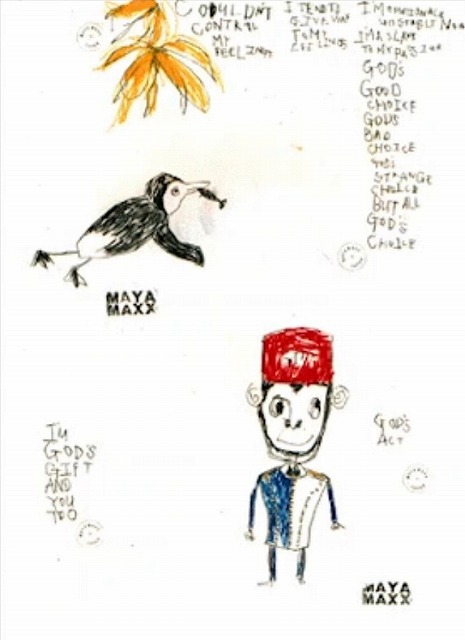 COULDN'T
CONTROL
MY
FEELINGS
I TEND TO
GIVE WAY
TO MY
FEELINGS
I'M EMOTIONALLY
UNSTABLE NOW
I'M A SLAVE
TO MY PASSION
GOD'S
GOOD
CHOICE
GOD'S
BAD
CHOICE
GOD'S
STRANGE
CHOICE
BUT ALL
GOD'S
CHOICE
MAYA
MAXX
I'M
GOD'S
GIFT
AND
YOU
TOO
GOD'S
ACT
MAYA
MAXX